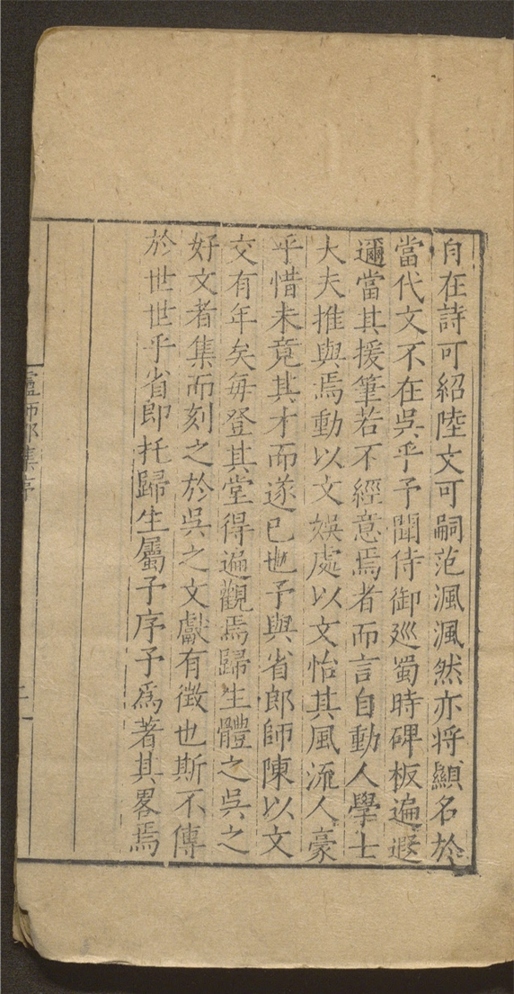 自在詩可紹陸文可嗣范渢渢然亦將顯名於
當代文不在吳乎予聞侍御廵蜀時碑板遍遐
邇當其援筆若不經意焉者而言自動人學士
大夫推與焉動以文娛處以文怡其風流人豪
乎惜未竟其才而遂已也予與省郎師陳以文
交有年矣每登其堂得遍觀焉歸生體之吳之
好文者集而刻之於吳之文獻有徵也斯不傳
於世世乎省郎托歸生屬予序予爲著其畧焉
集序
二